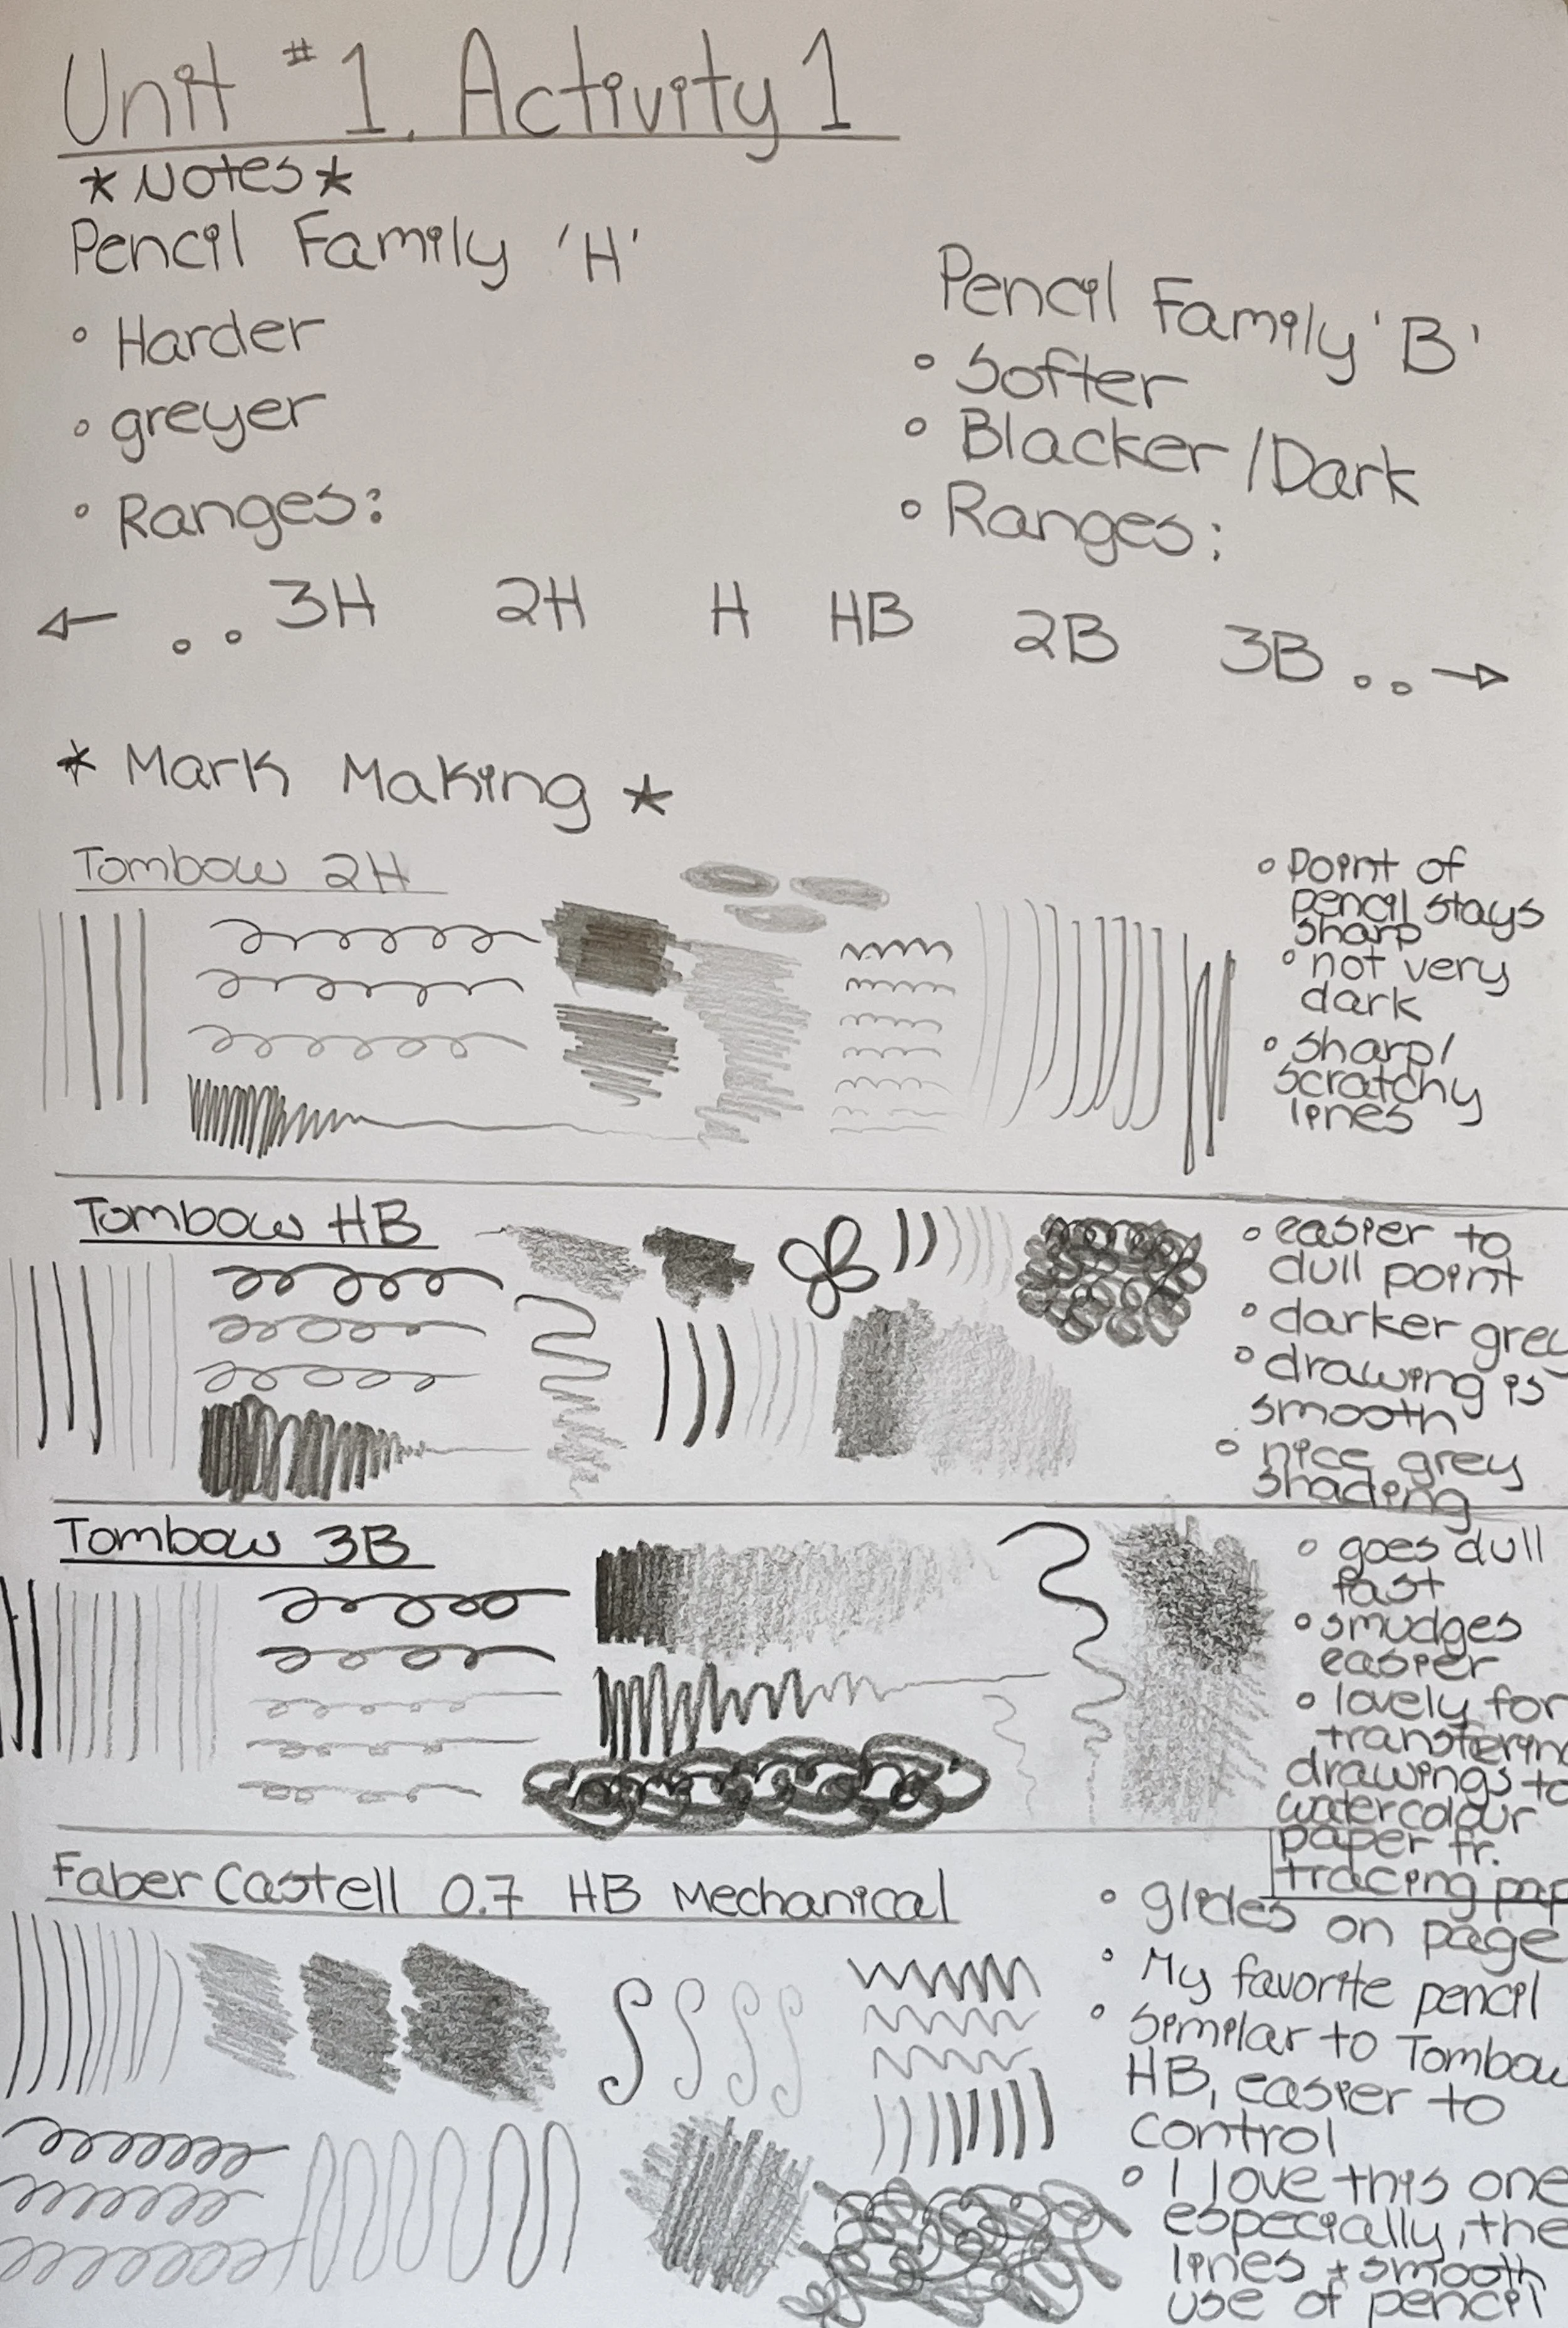 Unit #1, Activity 1
*Notes*
Pencil Family 'H'
• Harder
• greyer
• Ranges:
Pencil Family 'B'
• Softer
• Blacker/Dark
• Ranges:
← . . 3H 2H H HB 2B 3B . . →
* Mark Making *
Tombow 2H
• Point of
pencil stays
sharp
• not very
dark
• sharp/
scratchy
lines
Tombow HB
• easier to
dull point
• darker grey
• drawing is
smooth
• nice grey
shading
Tombow 3B
• goes dull
fast
• smudges
easier
• lovely for
transfering
drawings to
watercolour
paper fr.
tracing pap
Faber Castell 0.7 HB Mechanical
• glides on page
• My favorite pencil
• similar to Tombow
HB, easier to
control
• I love this one
especially, the
lines + smooth
use of pencil